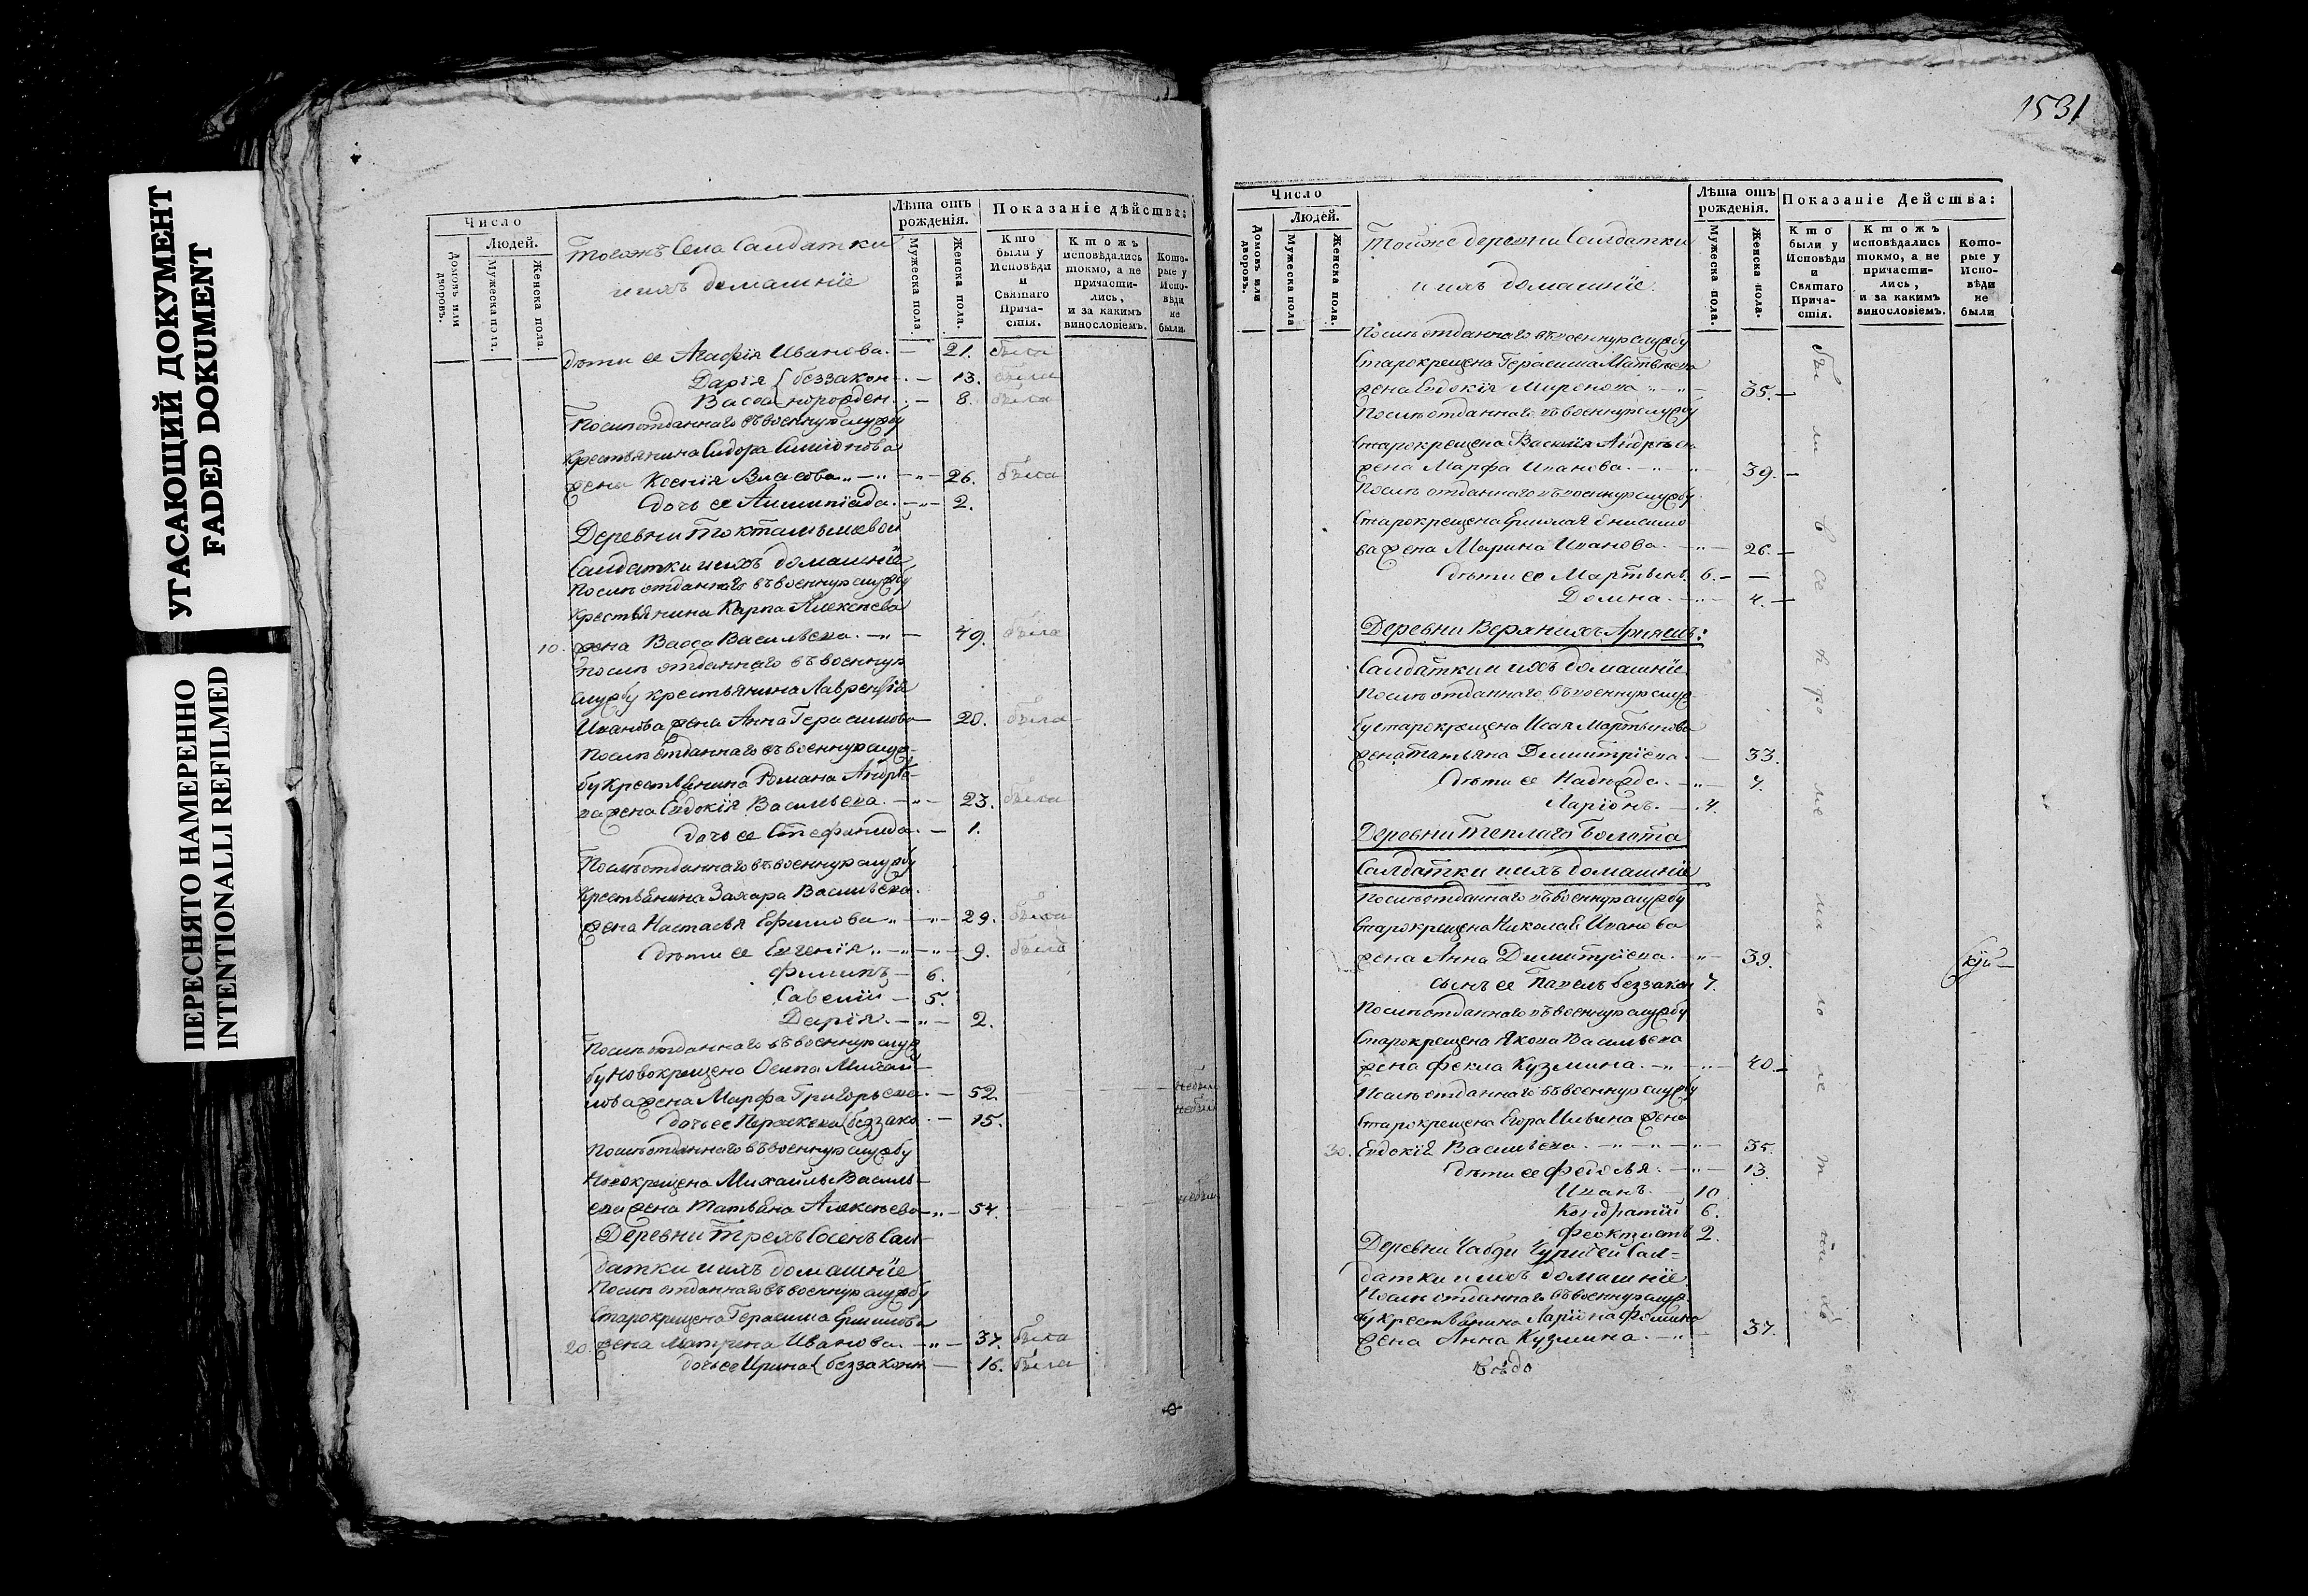 УГАСАЮЩИЙ ДОКУМЕНТ
FADED DOKUMENT
ПЕРЕСНЯТО НАМЕРЕННО
INTENTIONALLI REFILMED
Число
Людей.
Домовъ или дворовъ.
Мужеска пола.
Женска пола.
Тогожъ Села Салдатки
и ихъ домашніе
Лѣта отъ рожденія.
Мужеска пола.
Женска пола.
Показаніе дѣйства:
Кто были у Исповѣди и Святаго Прича-стія.
Ктожъ исповѣдались токмо, а не причасти-лись, и за какимъ винословіемъ.
Кото-рые у Испо-вѣди не были.
дѣти ее Агафія Иванова. — 21. была
Дарія { беззакон — 13. была
Васса { норожден. — 8. была
Послѣ отданнаго въ военную службу
крестьянина Сидора Симіонова
жена Ксенія Власова — 26. была
дочь ее Алимпіада. — 2.
Деревни Токталышевой
Салдатки и ихъ домашніе
Послѣ отданнаго въ военную службу
крестьянина Карпа Алексѣева
10. жена Васса Васильева. — 49. была
Послѣ отданнаго въ военную
службу крестьянина Лаврентія
Иванова жена Анна Герасимова — 20. была
Послѣ отданнаго въ военную служ-
бу крестьянина Романа Андрѣе-
ва жена Евдокія Васильева. — 23. была
дочь ее Стефанида. — 1.
Послѣ отданнаго въ военную службу
крестьянина Захара Васильева.
жена Настасья Ефимова — 29. была
дѣти ее Евгенія — 9. была
Филипъ — 6.
Савелій — 5.
Дарія. — 2.
Послѣ отданнаго въ военную служ
бу новокрещена Осипа Михай-
лова жена Марфа Григорьева — 52. небыл
дочь ее Параскева (беззако. — 15. небыл
Послѣ отданнаго въ военную службу
Новокрещена Михайлы Василь-
ева жена Татьяна Алексѣева — 54. небыл
Деревни Трехъ Сосенъ Сал-
датки и ихъ домашніе
Послѣ отданнаго въ военную службу
Старокрещена Герасима Ермилова
20. жена Матрена Иванова. — 37. была
дочь ее Ирина ( беззаконн — 16. была
1531
Число
Людей.
Домовъ или дворовъ.
Мужеска пола
Женска пола.
Тойже деревни Салдатки
и ихъ домашніе.
Лѣта отъ рожденія.
Мужеска пола.
Женска пола.
Показаніе Дейсша:
Кто были у Исповѣди и Святаго Прича-стія.
Ктожъ исповѣдались токмо, а не причасти-лись, и за какимъ винословіемъ.
Кото-рые у Испо-вѣди не были
Послѣ отданнаго въ военную службу
Старокрещена Герасима Матвѣева
жена Евдокія Миронова — 35. —
Послѣ отданнаго въ военную службу
Старокрещена Василія Андрѣева
жена Марфа Иванова. — 39. —
Послѣ отданнаго въ военную службу
Старокрещена Ермолая Онисимо
ва жена Марина Иванова. — 26. —
дѣти ее Мартынъ 6. —
Домна. — 4. —
Деревни Верхнихъ Арняшъ:
Салдатки и ихъ домашніе
Послѣ отданнаго въ военную служ
бу старокрещена Исая Мартынова
жена Татьяна Димитріева. — 33.
дѣти ее Надежда. — 7.
Ларіонъ. — 4.
Деревни Теплаго Болота
Салдатки и ихъ домашніе
Послѣ отданнаго въ военную службу
Старокрещена Николая Иванова
жена Анна Димитріева. — 39.
сынъ ее Павелъ беззакон 7.
Послѣ отданнаго въ военную службу
Старокрещена Якова Васильева
жена Фекла Кузмина. — 40. —
Послѣ отданнаго въ военную службу
Старокрещена Егора Ильина жена
30. Евдокія Васильева. — 35.
дѣти ее Федосья. — 13.
Иванъ. — 10
Кондратій 6.
Феоктистъ 2.
Салдатки и ихъ домашніе.
Послѣ отданнаго въ военную служ
бу крестьянина Ларіона Фомина
жена Анна Кузмина. — 37.